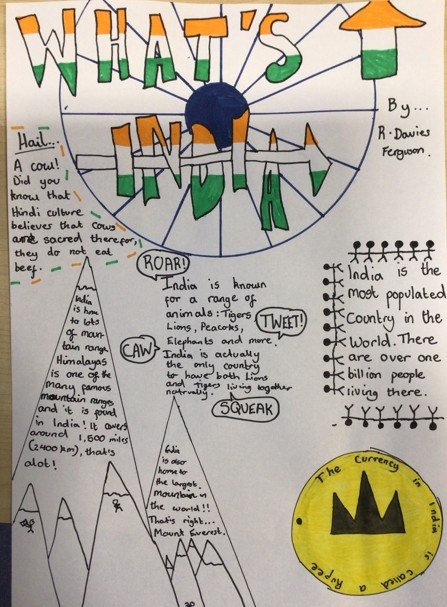 WHAT'S UP
INDIA
By...
R. Davies
Ferguson.
Hail...
A cow!
Did you
know that
Hindi culture
believes that cows
are sacred therefor,
they do not eat
beef.
ROAR!
India is known
for a range of
animals: Tigers
Lions, Peacoks,
Elephants and more.
TWEET!
CAW
India is actually
the only country
to have both Lions
and tigers living together
natrually.
SQUEAK
India is the
most populated
Country in the
World. There
are over one
billion people
living there.
India
is home
to lots
of moun-
tain range.
Himalayas
is one of the
many famous
mountain ranges
and it is found
in India! It covers
around 1,500 miles
(2400 km), that's
alot!
India
is also
home to
the largest
mountain in
the world!!
That's right...
Mount Everest.
The Currency in India is called a Rupee